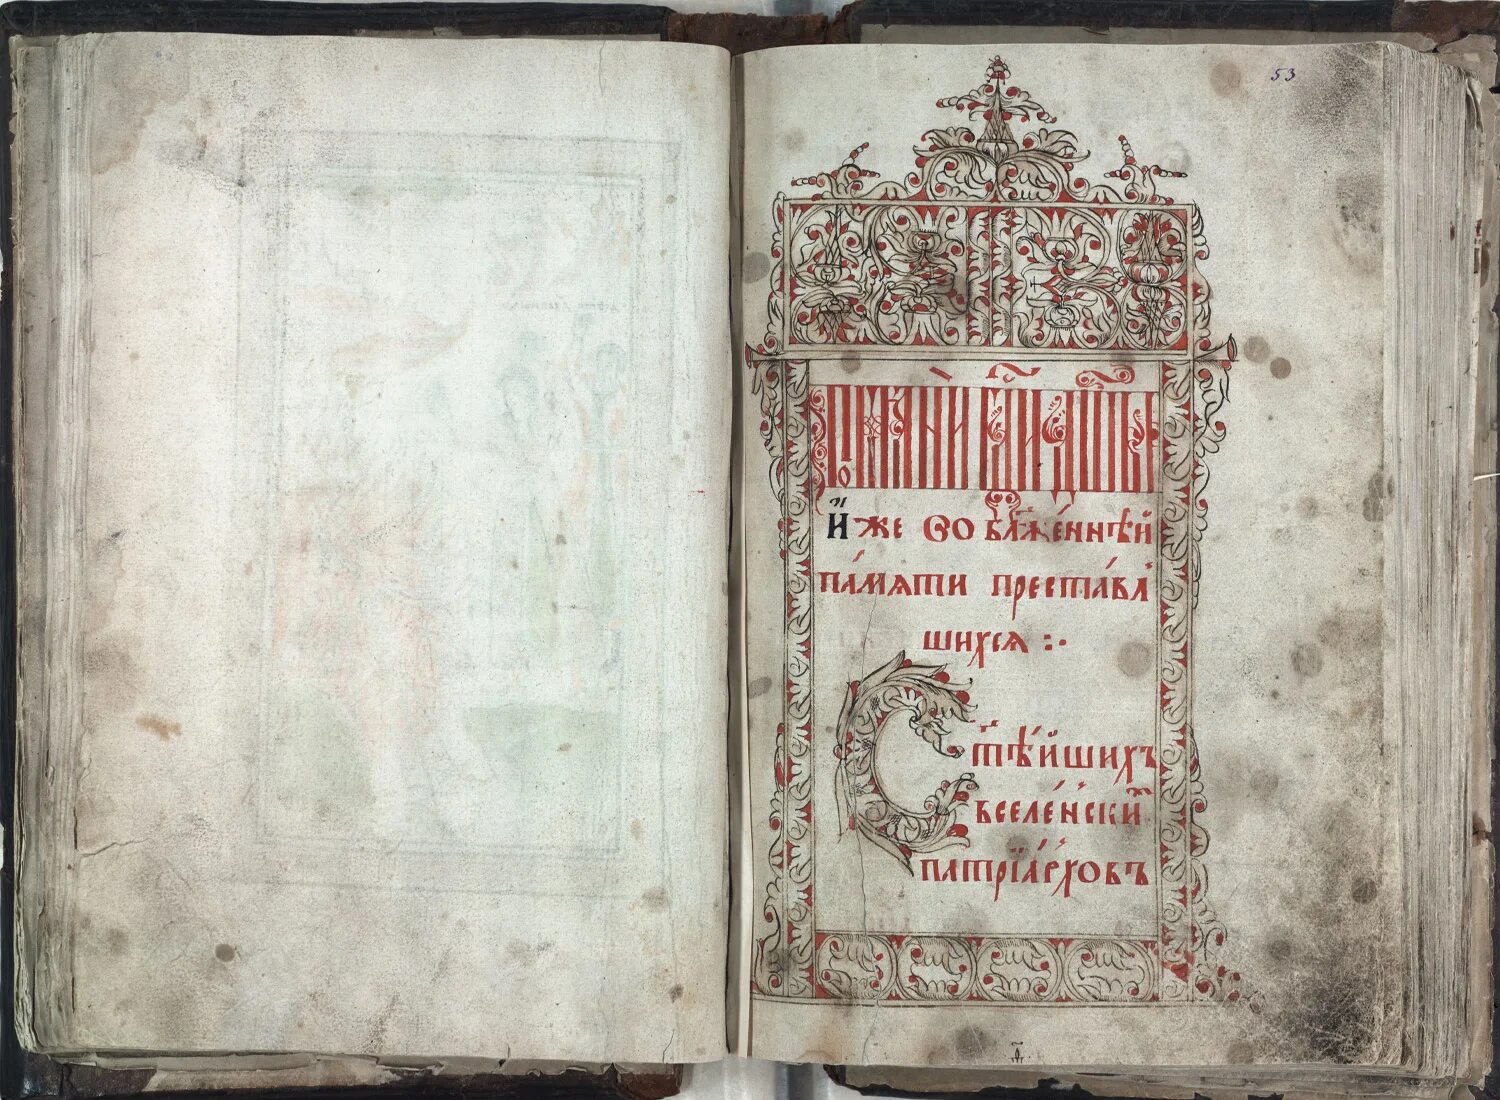 53
И҆́же во бл҃же́ннѣй
па́мѧти преста́вл
шихсѧ :·
Ст҃ѣ́йшихъ
вселе́нскиⷯ
патрїа́рховъ